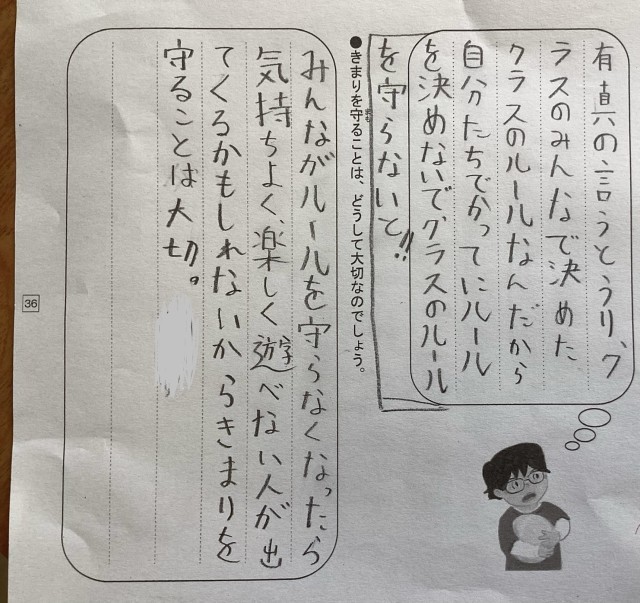 有真の言うとうり、ク
ラスのみんなで決めた
クラスのルールなんだから
自分たちでかってにルール
を決めないでクラスのルール
を守らないと!!
●きまりを守ることは、どうして大切なのでしょう。
みんながルールを守らなくなったら
気持ちよく、楽しく遊べない人が出
てくるかもしれないからきまりを
守ることは大切。
36